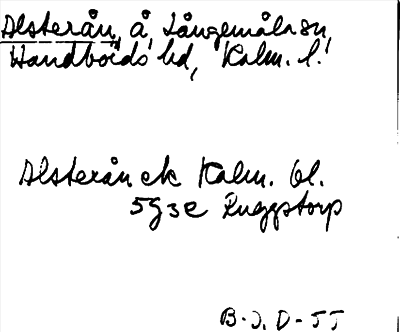 Alsterån, å, Långemåla sn,
Handbörds hd, Kalm. l.
Alsterån ek Kalm. bl.
5g3e Ruggstorp
B-J. D-TT